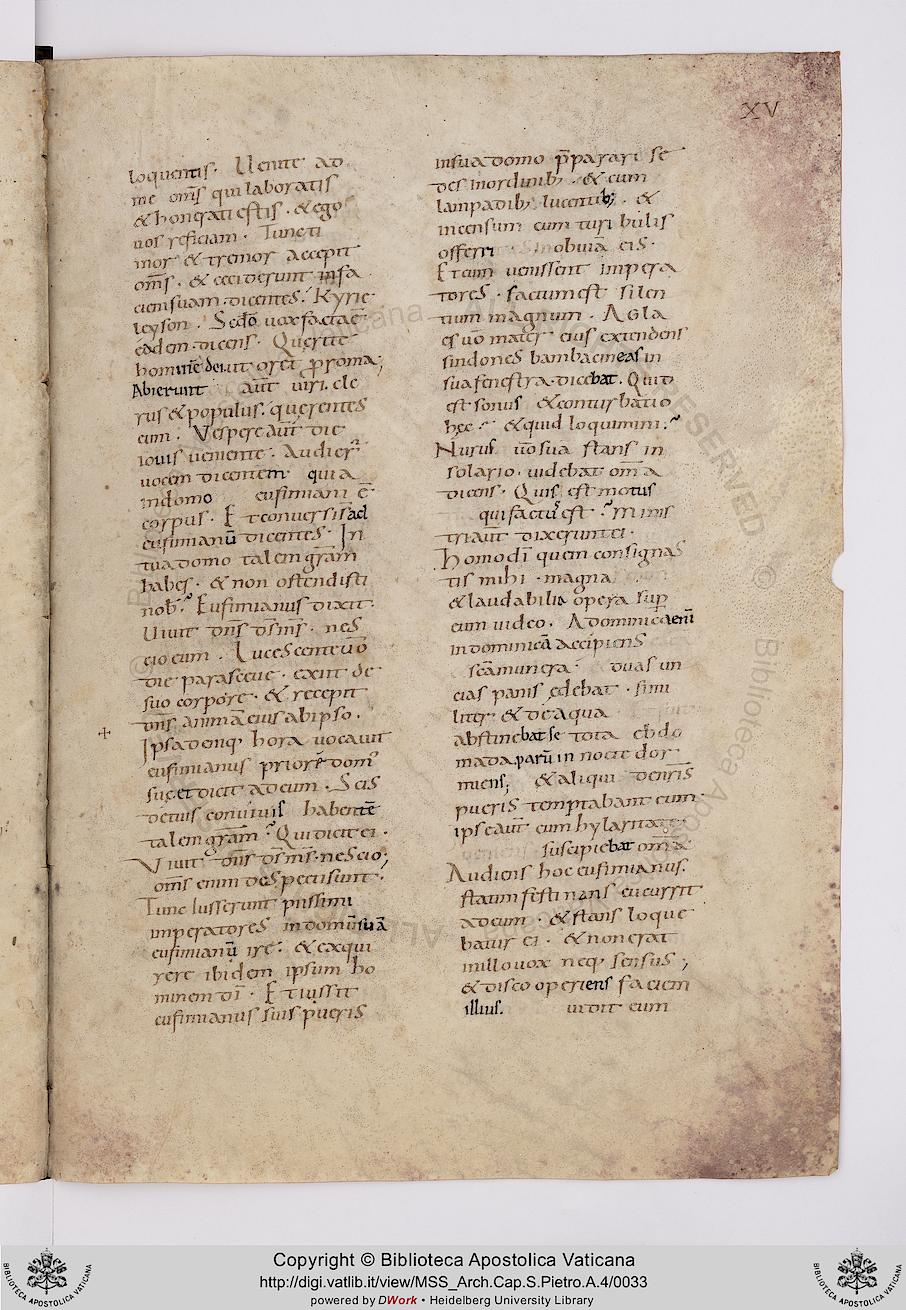 XV
loquentis. Uenite ad
me om̅s qui laboratis
& honerati estis. & ego
uos reficiam. Tunc ti
mor & tremor accepit
om̅s. & ceciderunt in fa
ciem suam. dicentes. Kyrie
leyson. Sedo uox facta ē
eadem. dicens. Querite
homine dei ut oret p roma;
Abierunt aut̄ uiri. cle
rus & populus. querentes
eum. Vespere aut̄ die
iouis ueniente. Audier̄
uocem dicentem quia
indomo eufimiani ē
corpus. Et conuersis ad
eufimianū dicentes. In
tua domo talem gr̄am
habes. & non ostendisti
nob. Eufimianus dixit.
Uiuit dn̄s ds̄ ms̄. nes
cio eum. Lucescente uō
die parasceue. exiit de
suo corpore. & recepit
dn̄s anima eius ab ipso.
Ipsa denq; hora uocauit
eufimianus priorē dom'
suę. et dicit ad eum. Scis
de tuis conuiuis habentē
talem gr̄am? Qui dicit ei.
Viuit dn̄s ds̄ ms̄. nescio;
om̄s enim despecti sunt.
Tunc iusserunt piissimi
imperatores indomū suā
eufimianū ire. & exqui
rere ibidem ipsum ho
minem dī. Et iussit
eufimianus suis pueris
in sua domo p̄parari se
des inordinib; & cum
lampadib; lucentib; &
incensum cum turibulis
offerri in obuiā eis.
Et cum uenissent impera
tores. factum est silen
tium magnum. Agla
es uō mater eius extendens
sindones bambacineas in
sua fenestra. dicebat. Quid
est sonus & conturbatio
hęc & quid loquimini?
Nurus uō sua stans in
solario. uidebat om̄a
dicens. Quis est motus
qui factū est? Minis
tri aut̄ dixerunt ei.
Homo dī quem consignas
tis mihi. magna
& laudabilia opera sup
eum uideo. A dominica enī
in dominicā accipiens
sc̄a munera. duas un
cias panis edebat. simi
liter & de aqua
abstinebat se tota ebdo
mada parū in nocte dor
miens; & aliqui denr̄is
pueris temptabant eum.
ipse aut̄ cum hylaritate
suscipiebat om̄a
Audiens hoc eufimianus.
statim festinans cucurrit
ad eum. & stans loque
batur ei. & non erat
in illo uox neq; sensus;
& discooperiens faciem
illius. uidit eum
Copyright © Biblioteca Apostolica Vaticana
http://digi.vatlib.it/view/MSS_Arch.Cap.S.Pietro.A.4/0033
powered by DWork • Heidelberg University Library
BIBLIOTECA APOSTOLICA VATICANA
BIBLIOTECA APOSTOLICA VATICANA